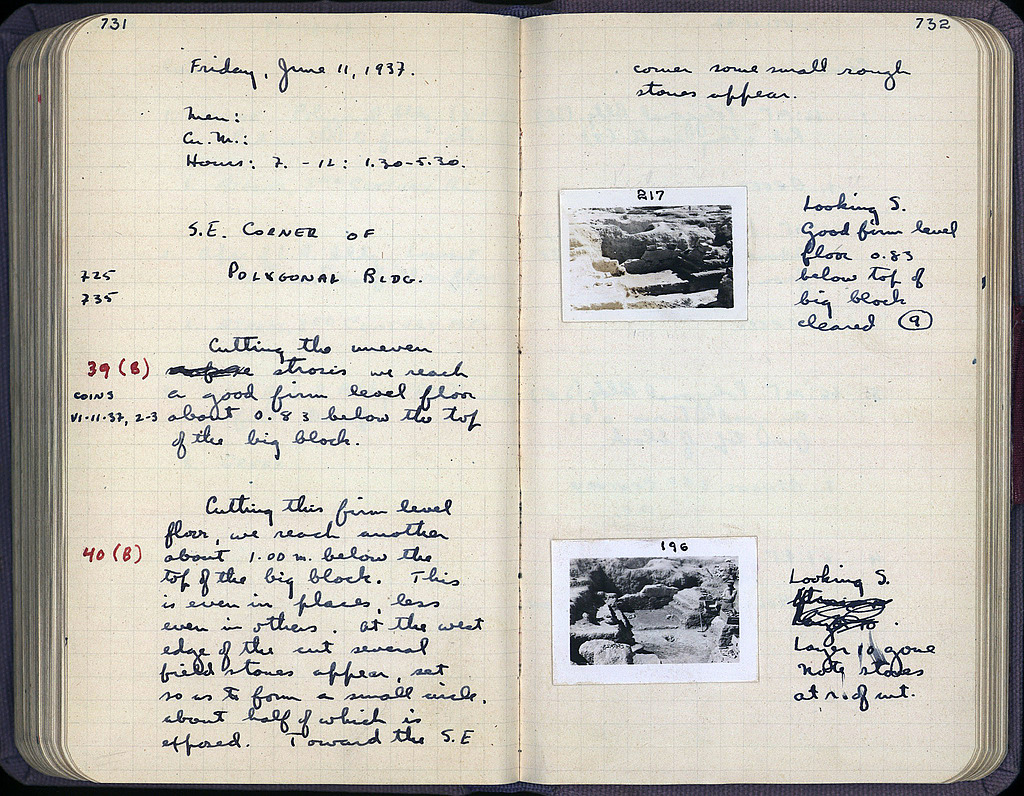 731
Friday, June 11, 1937.
Men:
Hours: 7. - 12: 1.30-5.30.
S.E. CORNER OF
POLYGONAL BLDG.
725
735
Cutting the uneven
39 (B)
strosis we reach
COINS
a good firm level floor
VI-11-37, 2-3
about 0.83 below the top
of the big block.
Cutting this firm level
floor, we reach another
40 (B)
about 1.00 m. below the
top of the big block. This
is even in places, less
even in others. At the west
edge of the cut several
field stones appear, set
so as to form a small circle,
about half of which is
exposed. Toward the S.E
732
corner some small rough
stones appear.
217
Looking S.
Good firm level
floor 0.83
below top of
big block
cleared 9
196
Looking S.
Layer 10 gone
note stones
at r. of cut.